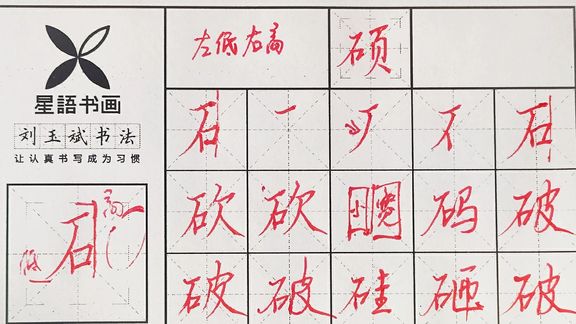 左低右高 硕
星語书画
刘玉斌书法
让认真书写成为习惯
石 一 丆 不 石
高
低 石
砍 砍 小 宽 码 破
破 破 硅 砸 破